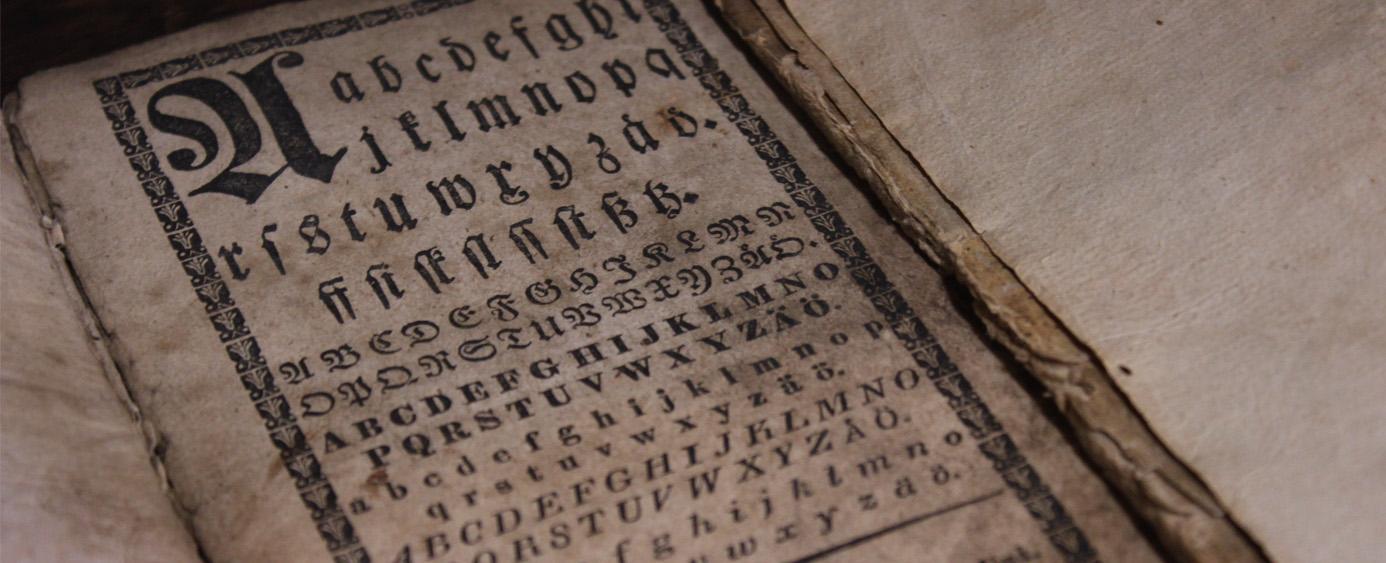 A a b c d e f g h i
j k l m n o p q
r ſ s t u w x y z å ö.
ff ſi ſk ſl ſſ ſt ß tz.
A B C D E F G H I K L M N
O P Q R S T U V W X Y Z Å Ö.
A B C D E F G H I J K L M N O
P Q R S T U V W X Y Z Ä Å Ö.
a b c d e f g h i j k l m n o p
q r s t u v w x y z ä å ö.
A B C D E F G H I J K L M N O
Q R S T U V W X Y Z Å Ö.
f g h i j k l m n o
u w x y z å ö.